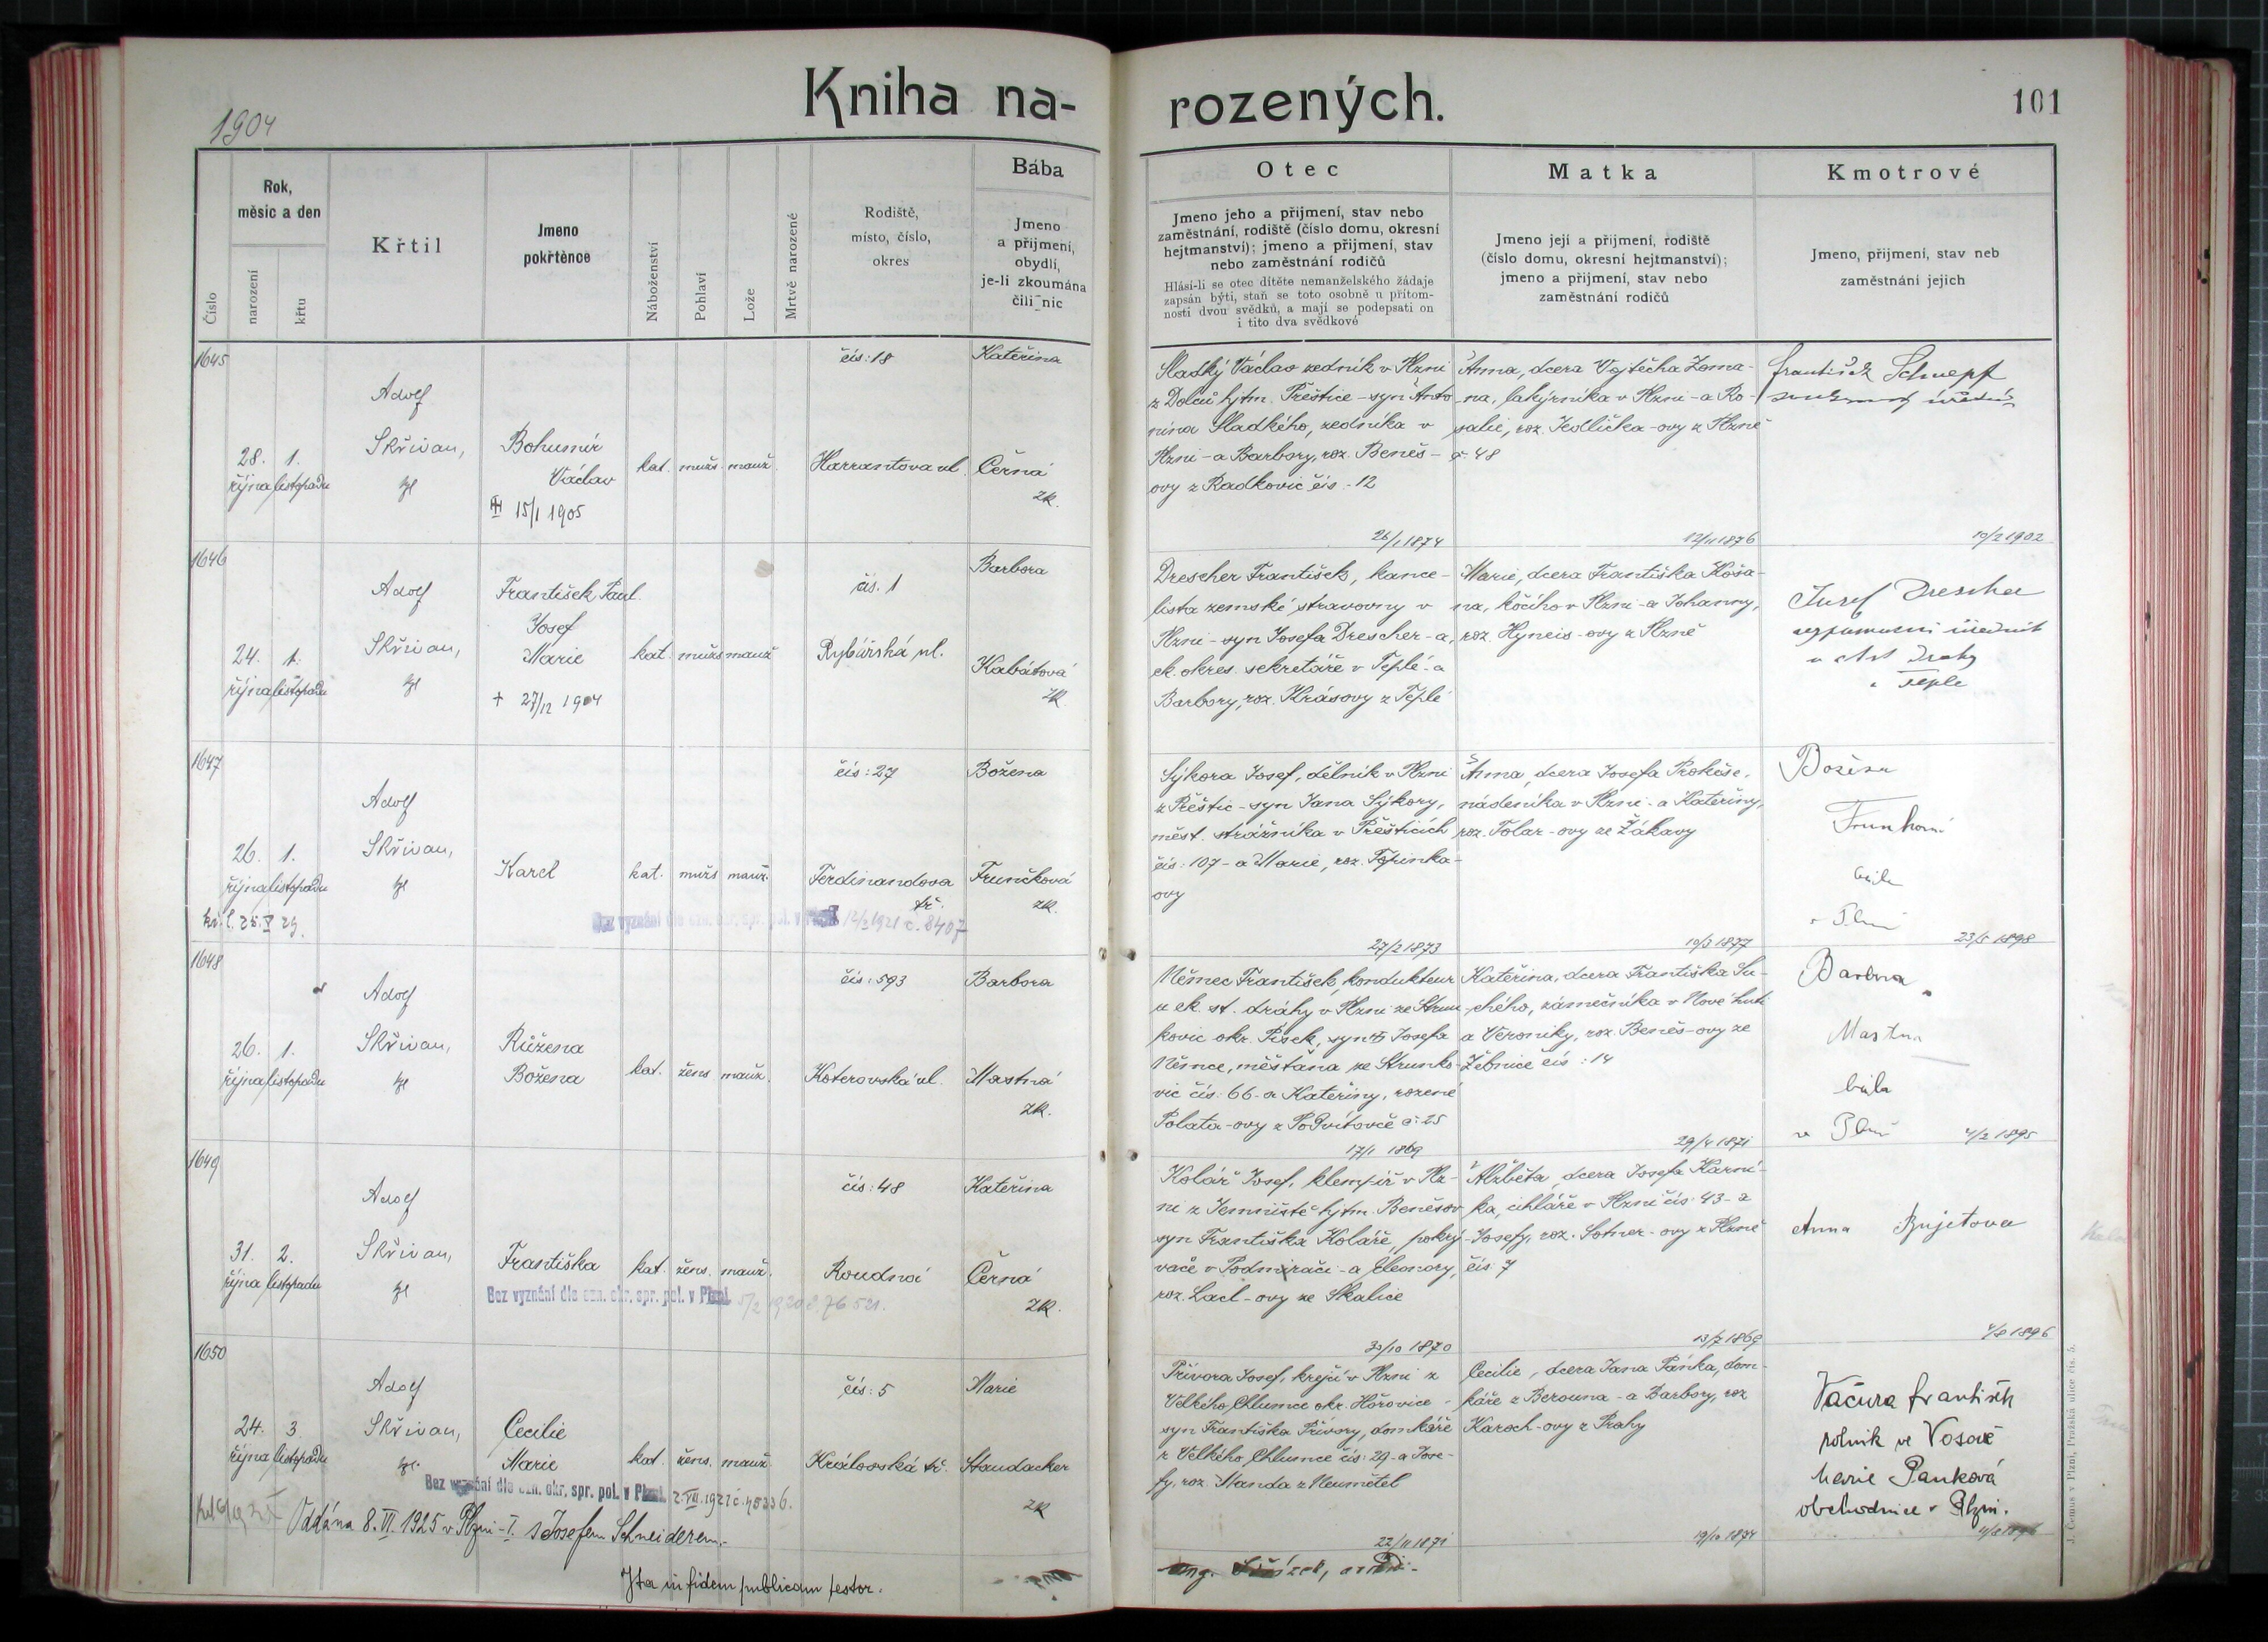 Kniha na-
rozených.
101
1904
Číslo
Rok,
měsíc a den
narození
křtu
Křtil
Jmeno
pokřtěnce
Náboženství
Pohlaví
Lože
Mrtvě narozené
Rodiště,
místo, číslo,
okres
Bába
Jmeno
a příjmení,
obydlí,
je-li zkoumána
čili nic
Otec
Jmeno jeho a příjmení, stav nebo
zaměstnání, rodiště (číslo domu, okresní
hejtmanství); jmeno a příjmení, stav
nebo zaměstnání rodičů
Hlásí-li se otec dítěte nemanželského žádaje
zapsán býti, staň se toto osobně u přítom-
nosti dvou svědků, a mají se podepsati on
i tito dva svědkové
Matka
Jmeno její a příjmení, rodiště
(číslo domu, okresní hejtmanství);
jmeno a příjmení, stav nebo
zaměstnání rodičů
Kmotrové
Jmeno, příjmení, stav neb
zaměstnání jejich
1645
28. října
1. listopadu
Adolf
Skřivan,
Bohumír
Václav
15/1 1905
kat. muž. manž.
čís: 18
Harrantova ul.
Kateřina
Černá
zk.
Sladký Václav zedník v Plzni
z Dolců hjtm. Přeštice - syn Anto-
nína Sladkého, zedníka v
Plzni - a Barbory, roz. Beneš-
ovy z Radkovic čís. 12
26/1 1874
Anna, dcera Vojtěcha Zema-
na, lakýrníka v Plzni - a Ro-
salie, roz. Jedlička-ovy z Plzně
č. 48
12/11 1876
František Schnepf
soukromý úředník
10/2 1902
1646
24. října
1. listopadu
Adolf
Skřivan,
František Paul.
Josef
Marie
+ 27/12 1904
kat. muž. manž.
čís. 1
Rybářská ul.
Barbora
Kabátová
zk.
Drescher František, kance-
lista zemské stravovny v
Plzni - syn Josefa Drescher-a,
ck. okres. sekretáře v Teplé - a
Barbory, roz. Krásovy z Teplé
Marie, dcera Františka Koša-
na, kočího v Plzni - a Johanny,
roz. Hyneis-ovy z Plzně
Josef Drescher
úředník
Teple
1647
26. října
1. listopadu
Adolf
Skřivan,
Karel
kat. muž. manž.
čís: 27
Ferdinandova
tř.
Božena
Frunčková
zk.
Bez vyznání dle ozn. okr. spr. pol. v Plzni 12/2 1921 č. 8407
Sýkora Josef, dělník v Plzni
z Přeštic - syn Jana Sýkory,
měst. strážníka v Přešticích
čís: 107 - a Marie, roz. Topinka-
ovy
27/2 1873
Anna, dcera Josefa Prokeše,
nádeníka v Plzni - a Kateřiny,
roz. Tolar-ovy ze Žákavy
10/3 1877
Božena
bába
v Plzni
23/5 1898
1648
26. října
1. listopadu
Adolf
Skřivan,
Růžena
Božena
kat. žens. manž.
čís: 593
Koterovská ul.
Barbora
Mastná
zk.
Němec František, kondukteur
u ck. st. dráhy v Plzni ze Strun-
kovic okr. Písek, syn Josefa
Němce, měšťana ze Strunko-
vic čís: 66 - a Kateřiny, rozené
Polata-ovy z
č: 25
17/1 1869
Kateřina, dcera Františka Su-
chého, zámečníka v Nové huti
a Veroniky, roz. Beneš-ovy ze
Žebnice čís: 14
29/4 1871
Barbora
Mastná
bába
v Plzni
4/2 1895
1649
31. října
2. listopadu
Adolf
Skřivan,
Františka
kat. žens. manž.
čís: 48
Roudná
Kateřina
Černá
zk.
Bez vyznání dle ozn. okr. spr. pol. v Plzni 5/2 1920 č. 76521.
Kolář Josef, klempíř v Pl-
zni z Jemniště hjtm. Benešov
syn Františka Koláře, pokrý-
vače v Podmračí - a Eleonory,
roz. Lacl-ovy ze Skalice
30/10 1870
Alžběta, dcera Josefa Karní-
ka, cihláře v Plzni čís: 43 - a
Josefy, roz. Sotner-ovy z Plzně
čís: 7
13/7 1869
Anna
4/8 1896
1650
24. října
3. listopadu
Adolf
Skřivan,
Cecilie
Marie
kat. žens. manž.
čís: 5
Královská tř.
Marie
Staudacher
zk
Bez vyznání dle ozn. okr. spr. pol. v Plzni 2.VIII.1921 č. 45236.
Oddána 8.VI.1925 v Plzni-I. s Josefem Schneiderem.
Přívora Josef, krejčí v Plzni z
Velkého Chlumce okr. Hořovice -
syn Františka Přívory, domkáře
z Velkého Chlumce čís: 29 - a Jose-
fy, roz. Standa z Neumětel
22/11 1871
Cecilie, dcera Jana Pánka, dom-
káře z Berouna - a Barbory, roz
Karoch-ovy z Prahy
19/10 1874
Vačura František
rolník ve Vosově
Marie Panková
obchodnice v Plzni.
Ita in fidem publicam testor.
J. Černus v Plzni, Pražská ulice čís. 5.